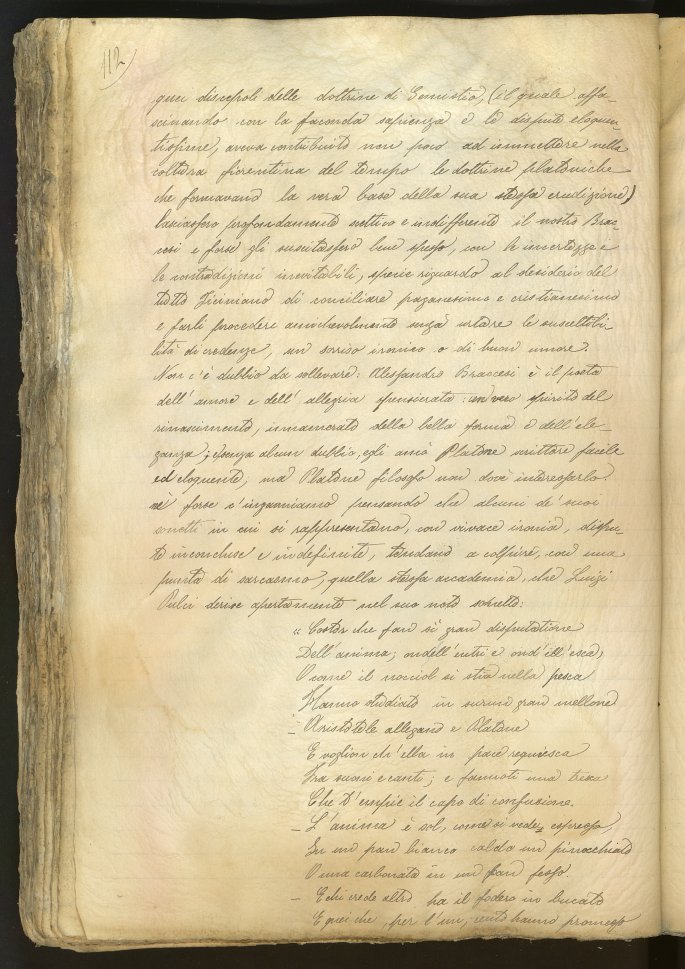 112
guaci discepoli delle dottrine di Gemistio, (il quale affa-
scinando con la faconda sapienza e le dispute eloquen-
tissime, aveva contribuito non poco ad immettere nella
coltura fiorentina del tempo le dottrine platoniche
che formavano la vera base della sua stessa erudizione)
lasciassero profondamente scettico e indifferente il nostro Brac-
cesi e forse gli suscitassero bene spesso, con le incertezze e
le contradizioni inevitabili, specie riguardo al desiderio del
tutto Ficiniano di conciliare paganesimo e cristianesimo
e farli procedere amichevolmente senza urtare le suscettibi-
lità di credenze, un sorriso ironico o di buon umore.
Non c'è dubbio da sollevare: Alessandro Braccesi è il poeta
dell'amore e dell'allegria spensierata: un vero spirito del
rinascimento, innamorato della bella forma e dell'ele-
ganza; senza alcun dubbio, egli amò Platone scrittore facile
ed eloquente, ma Platone filosofo non dovè interessarlo.
nè forse c'inganniamo pensando che alcuni de' suoi
sonetti in cui si rappresentano, con vivace ironia, dispu-
te inconcluse e indefinite, tendano a colpire, con una
punta di sarcasmo, quella stessa accademia, che Luigi
Pulci derise apertamente nel suo noto sonetto:
"Costor che fan sì gran disputatione
Dell'anima, ond'ell'entri e ond'ell'esca,
O come il nocciol si stia nella pesca
Hanno studiato in su run gran mellone
– Aristotele allegano e Platone
E voglion ch'ella in pace requiesca
Fra suoni e canti; e fannoti una tresca
Che t'empie il capo di confusione.
– L'anima è sol, come si vede espresso,
In un pan bianco caldo un pinocchiato
O una carbonata in un pan fesso.
– E chi crede altro ha il fodero in bucato
E quei che per l'un, cento hanno promesso